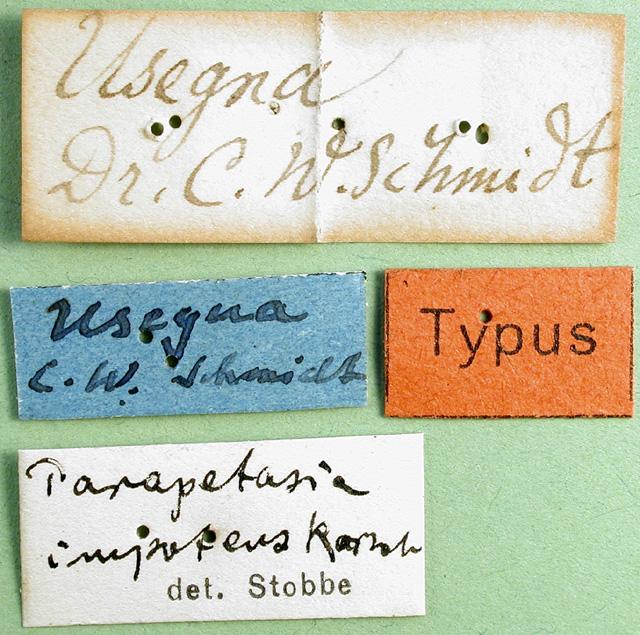 Usegna
Dr. C. W. Schmidt
Usegna
C. W. Schmidt
Typus
Parapetasia
impotens Karsch
det. Stobbe